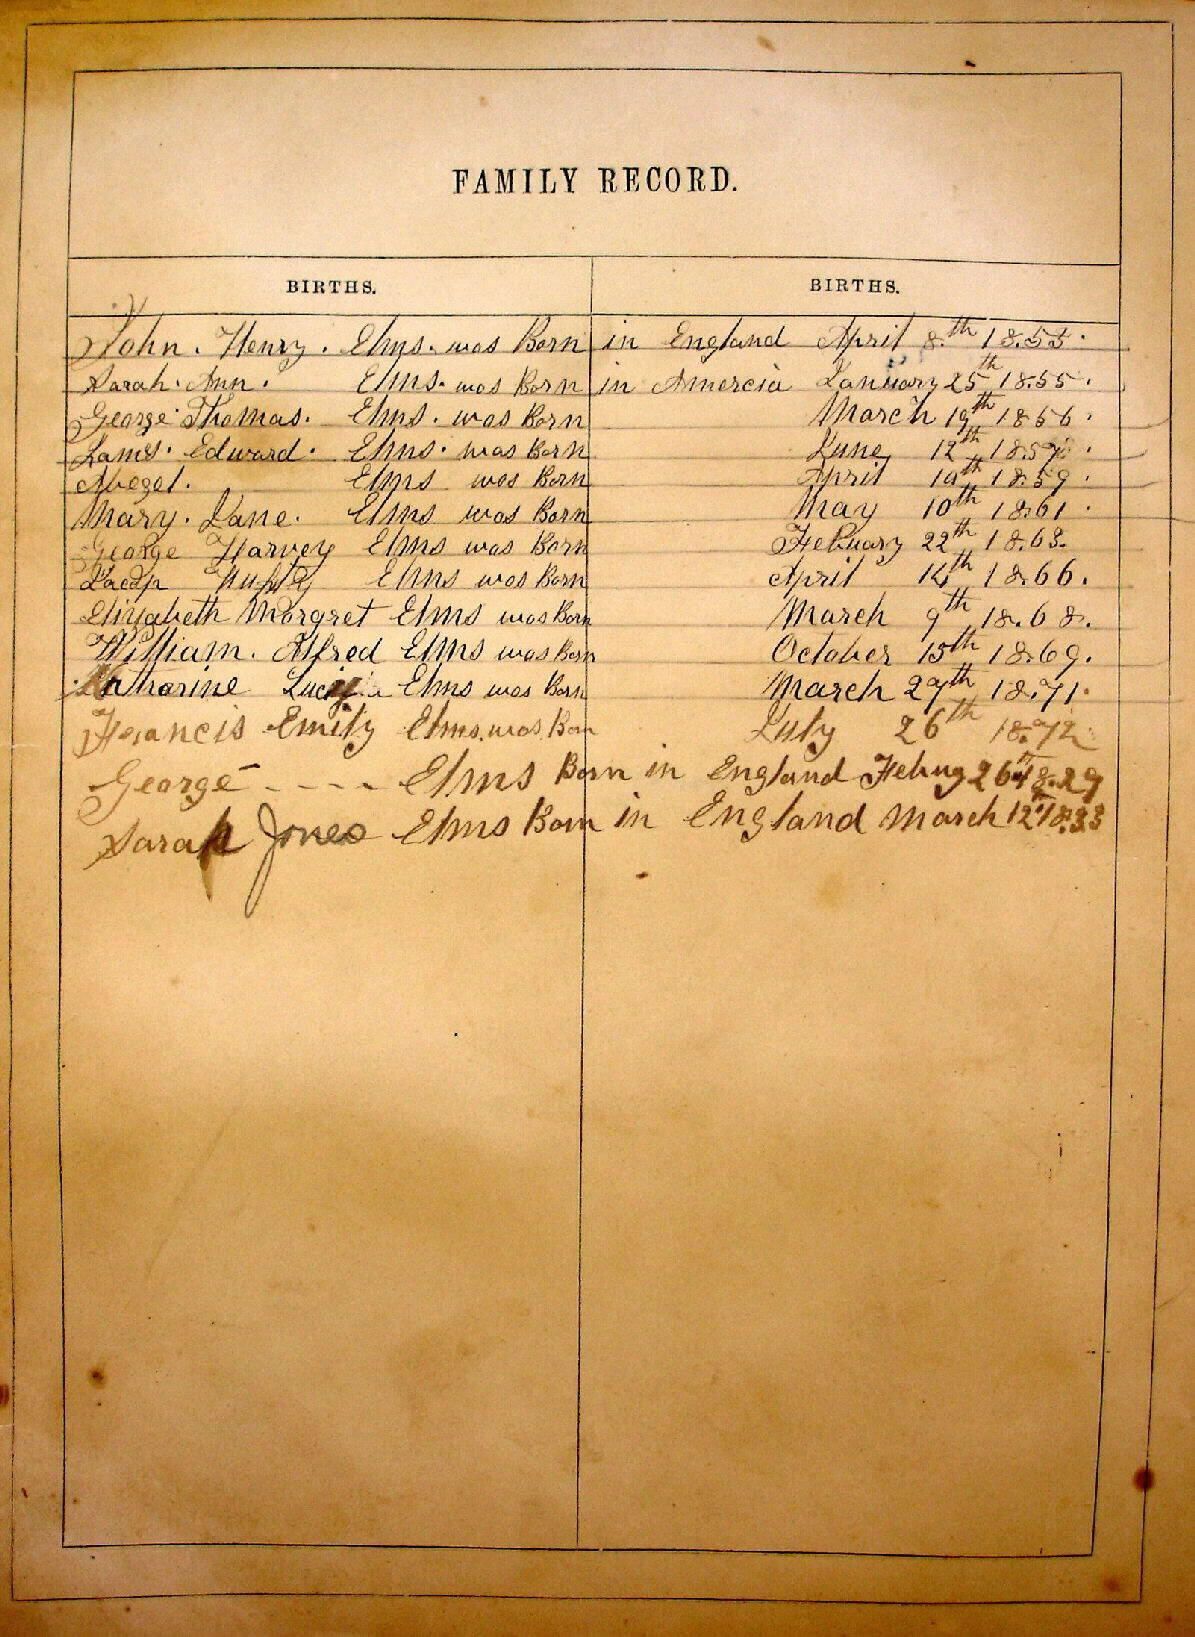 FAMILY RECORD.
BIRTHS. BIRTHS.
John. Henry. Elms. was Born in England April 8.th 18.53.
Sarah. Ann. Elms. was Born in Amercia January 25th 18.55.
George Thomas. Elms. was Born March 19th 18.56.
James. Edward. Elms. was Born June 12th
Abegel. Elms was Born April 18.59.
Mary. Jane. Elms was Born May 10th 18.61.
George Harvey Elms was Born Febuary 22th 18.63.
Elms was Born April 18.66.
Elizabeth Margret Elms was Born March 9th 18.68.
William. Alfred Elms was Born October 15th 18.69.
Katharine Elms was Born March 27th 18.71.
Francis Emily Elms. was Born July 26th 18.72
George ---- Elms Born in England 26th 18.29
Sarah Jones Elms Born in England March 12th 18.33